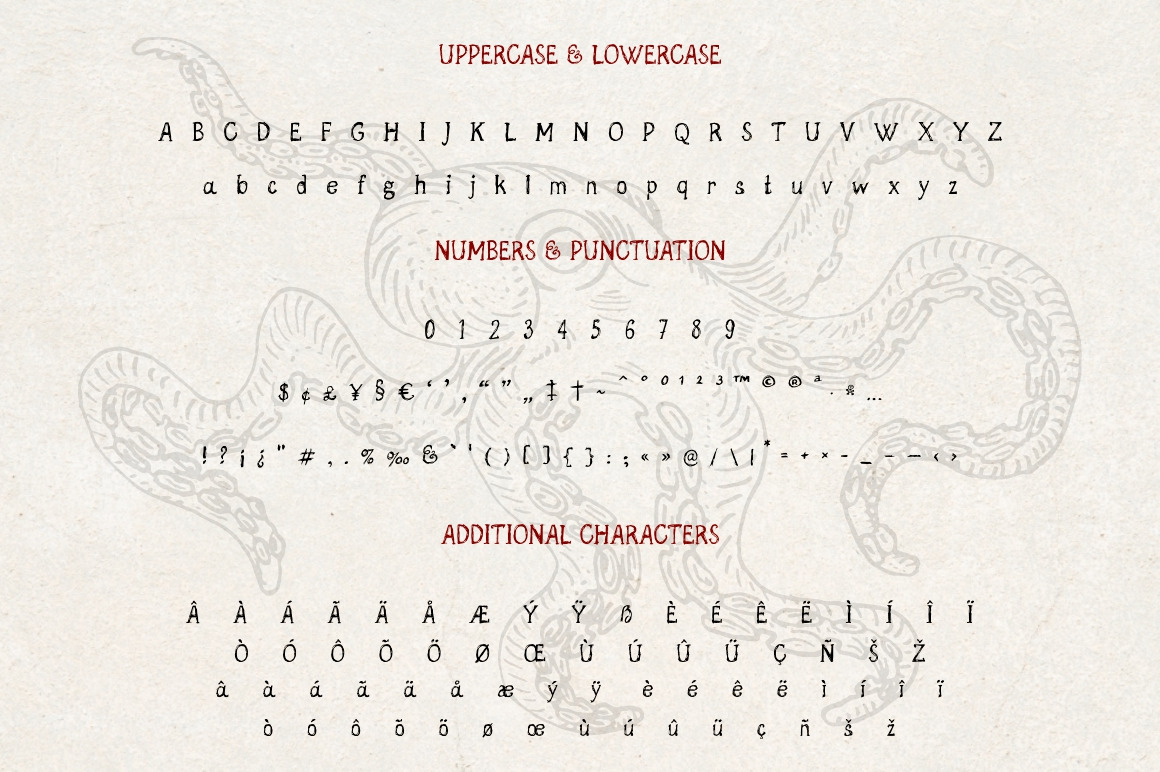 UPPERCASE & LOWERCASE
A B C D E F G H I J K L M N O P Q R S T U V W X Y Z
a b c d e f g h i j k l m n o p q r s t u v w x y z
NUMBERS & PUNCTUATION
0 1 2 3 4 5 6 7 8 9
$ ¢ £ ¥ § € ‘ ’ , “ ” „ ‡ † ~ ^ º 0 1 2 3 ™ © ® ª · * …
! ? ¡ ¿ " # , . % ‰ & ` ' ( ) [ ] { } : ; « » @ / \ | * = + × - _ – — ‹ ›
ADDITIONAL CHARACTERS
Â À Á Ã Ä Å Æ Ý Ÿ ß È É Ê Ë Ì Í Î Ï
Ò Ó Ô Õ Ö Ø Œ Ù Ú Û Ü Ç Ñ Š Ž
â à á ã ä å æ ý ÿ è é ê ë ì í î ï
ò ó ô õ ö ø œ ù ú û ü ç ñ š ž